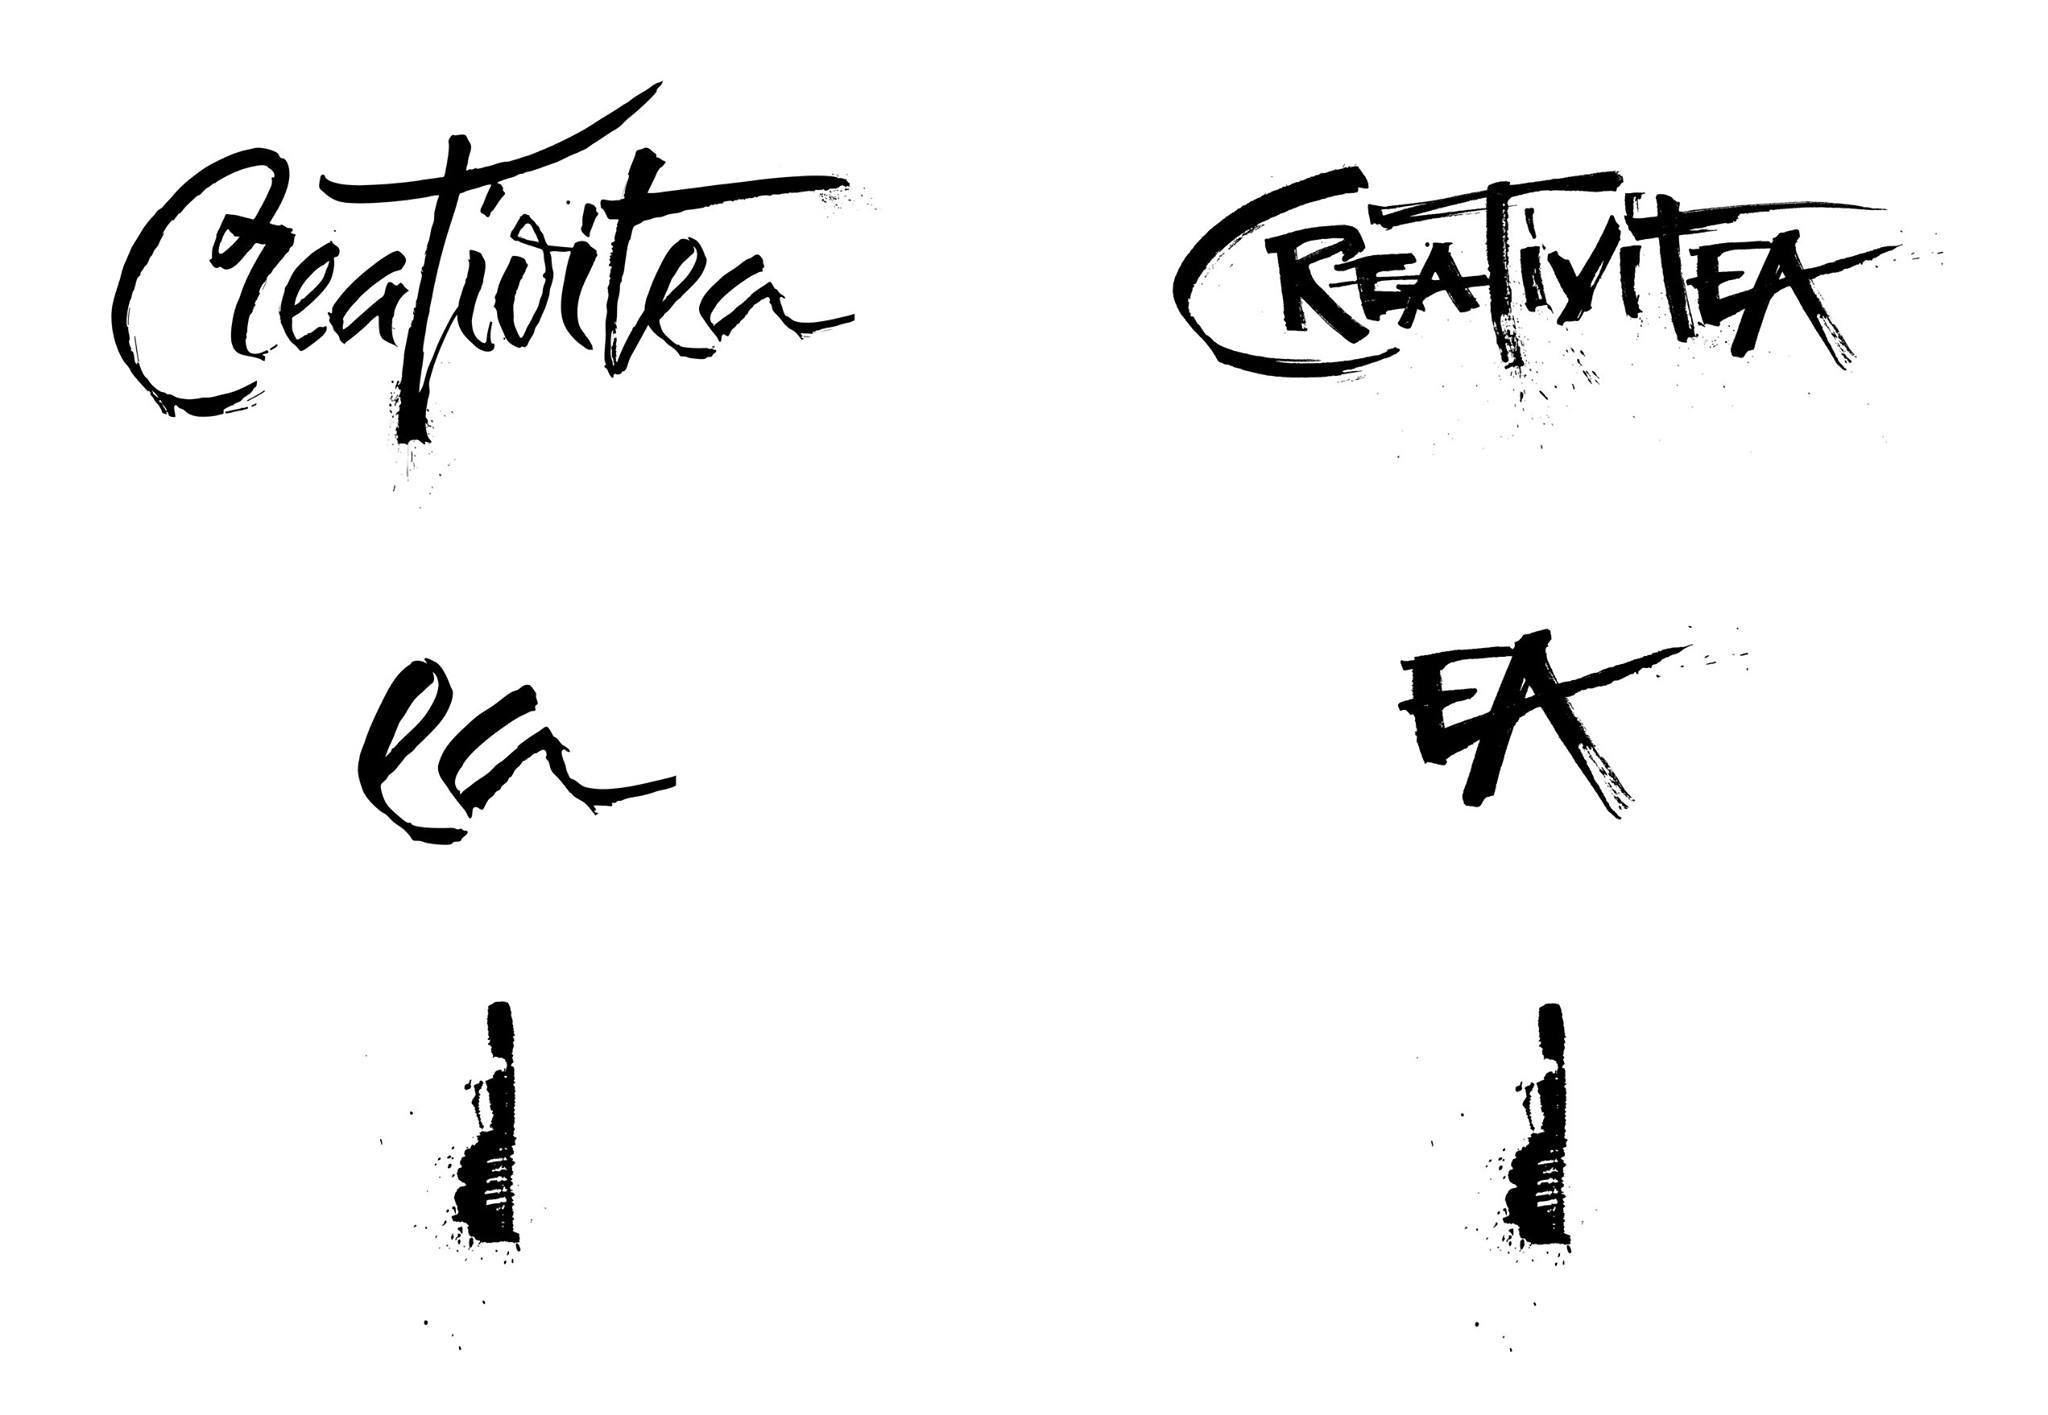 Creativitea
CREATiViTEA
ea
EA